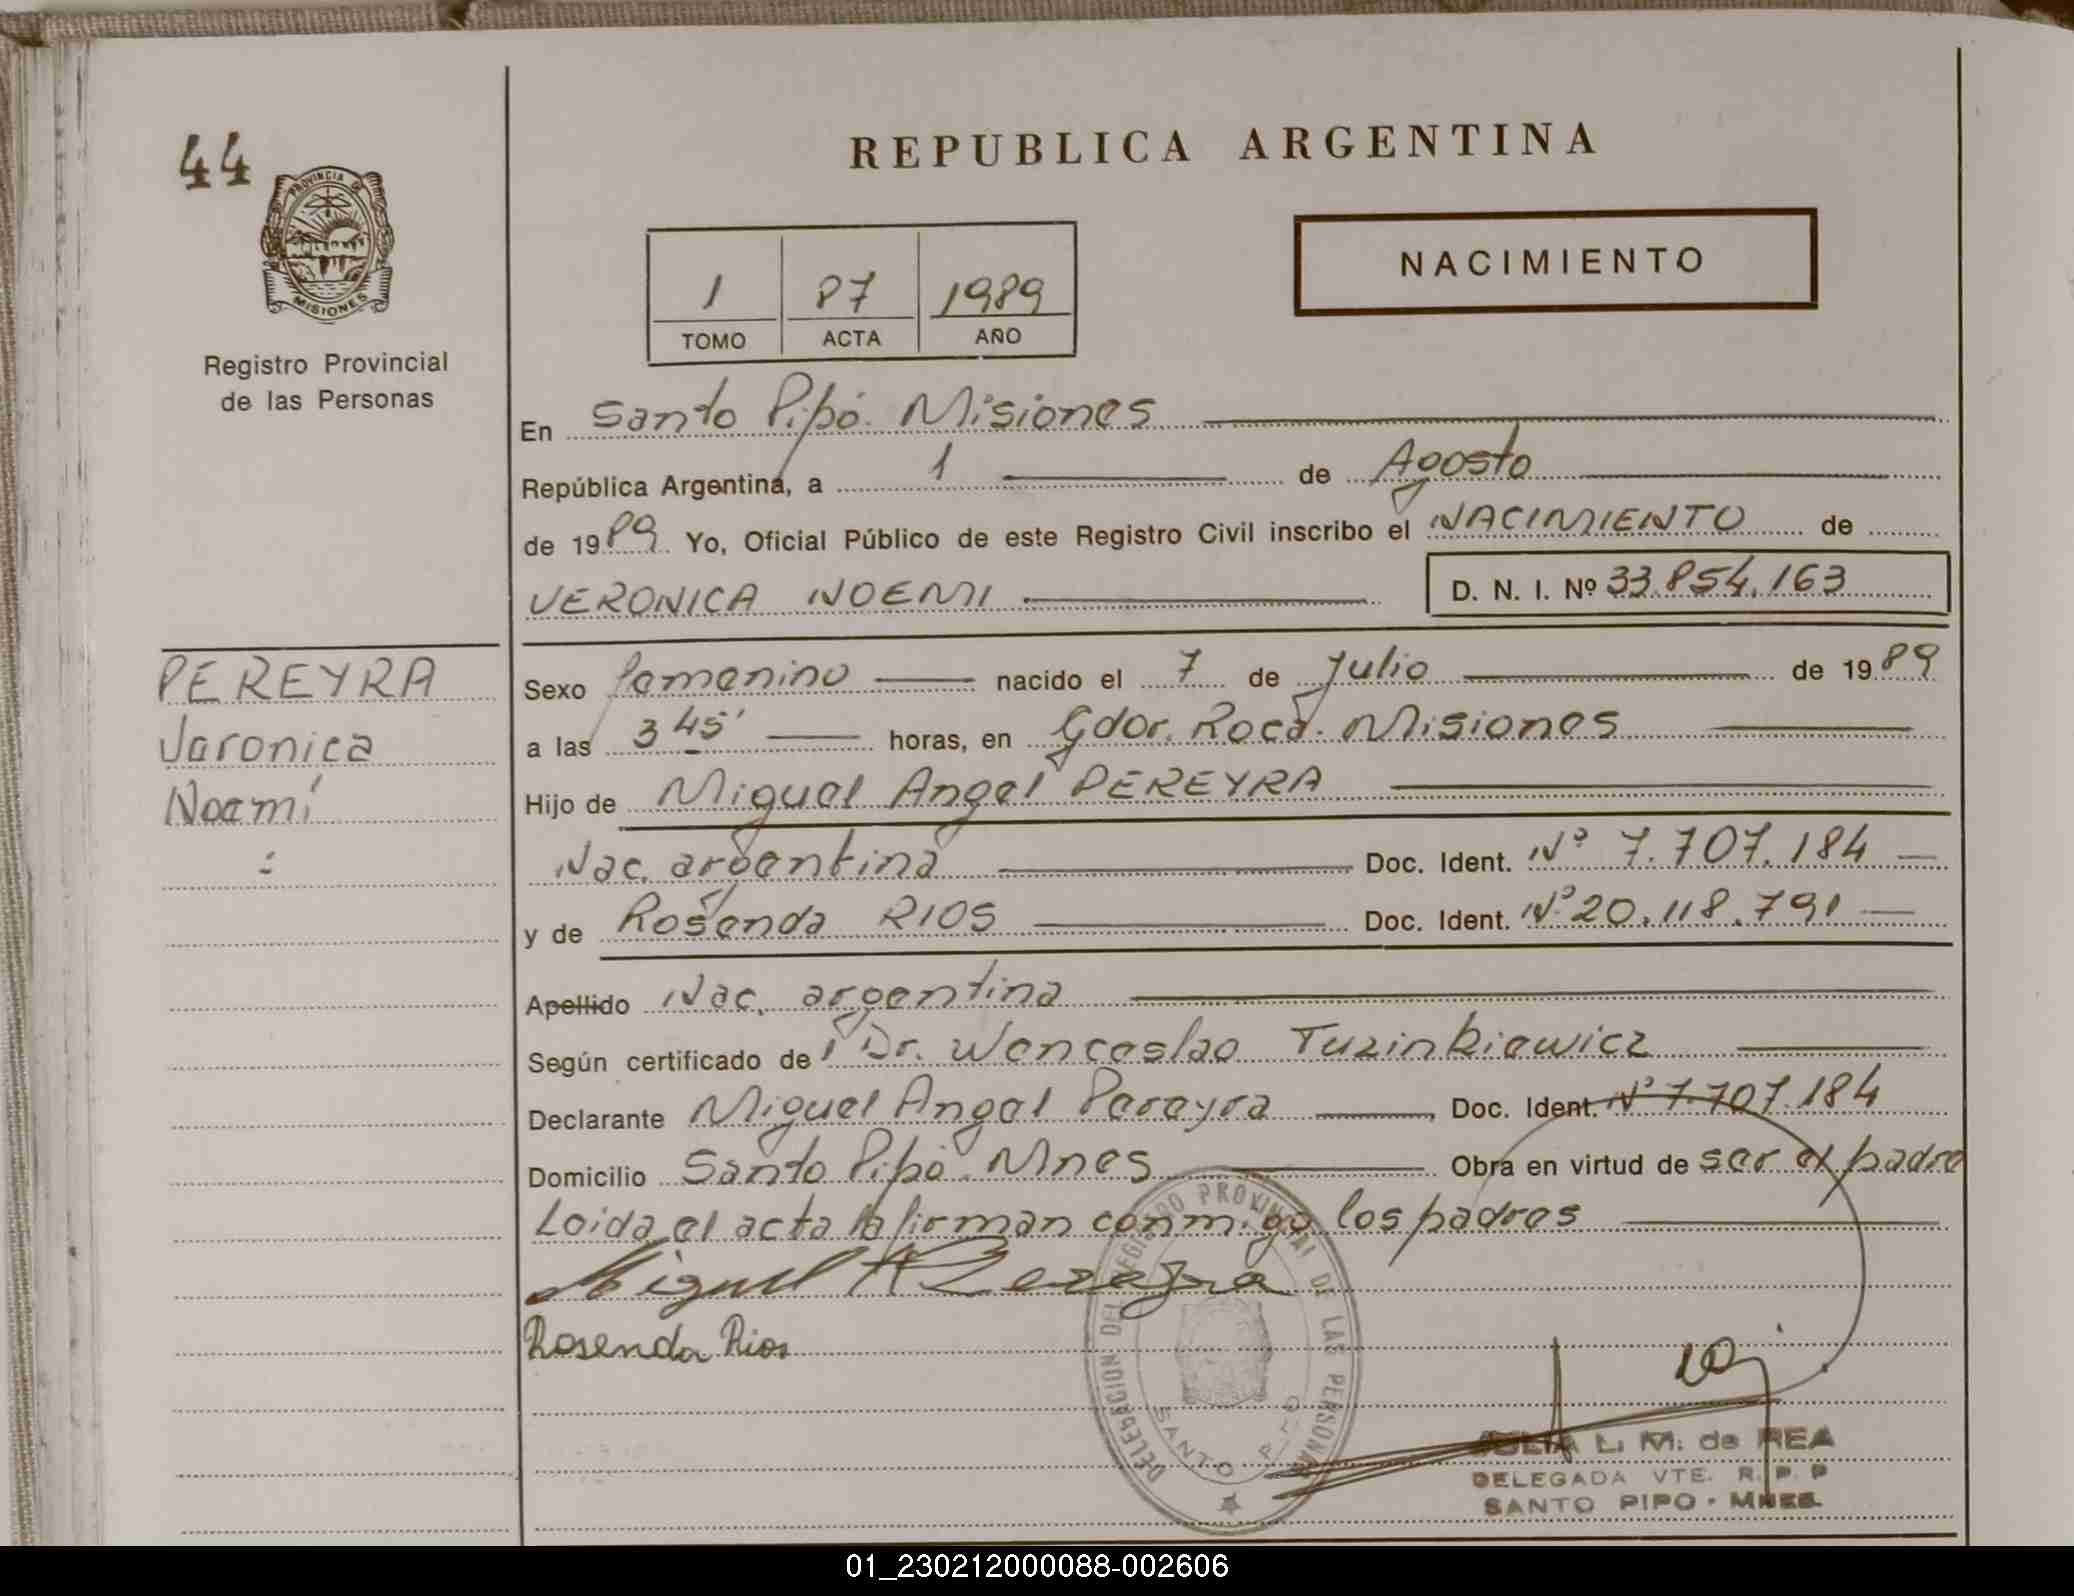 44
REPUBLICA ARGENTINA
PROVINCIA DE
MISIONES
NACIMIENTO
1 87 1989
TOMO ACTA AÑO
Registro Provincial
de las Personas
En Santo Pipó. Misiones
República Argentina, a 1 de Agosto
de 1989 Yo, Oficial Público de este Registro Civil inscribo el NACIMIENTO de
VERONICA NOEMI D. N. I. Nº 33.854.163
PEREYRA
Veronica
Noemí
Sexo femenino nacido el 7 de Julio de 1989
a las 3 45' horas, en Gdor. Roca. Misiones
Hijo de Miguel Angel PEREYRA
Nac. argentina Doc. Ident. Nº 7.707.184
y de Rosenda RIOS Doc. Ident. Nº 20.118.791
Apellido Nac. argentina
Según certificado de Dr. Wenceslao Tuzinkiewicz
Declarante Miguel Angel Pereyra, Doc. Ident. Nº 7.707.184
Domicilio Santo Pipó. Mnes Obra en virtud de ser el padre
Leida el acta la firman conmigo los padres
Miguel A Pereyra
Rosenda Rios
DELEGACION DEL REGISTRO PROVINCIAL DE LAS PERSONAS
SANTO PIPO
JULIA L. M. de REA
DELEGADA VTE. R. P. P
SANTO PIPO - MNES.
01_230212000088-002606